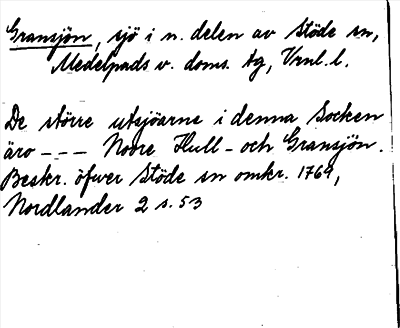 Gransjön, sjö i n. delen av Stöde sn,
Medelpads v. doms. tg, Vrnl. l.
De större utsjöarne i denna Socken
äro --- Norre Hull- och Gransjön.
Beskr. öfwer Stöde sn omkr. 1769,
Nordlander 2 s. 53